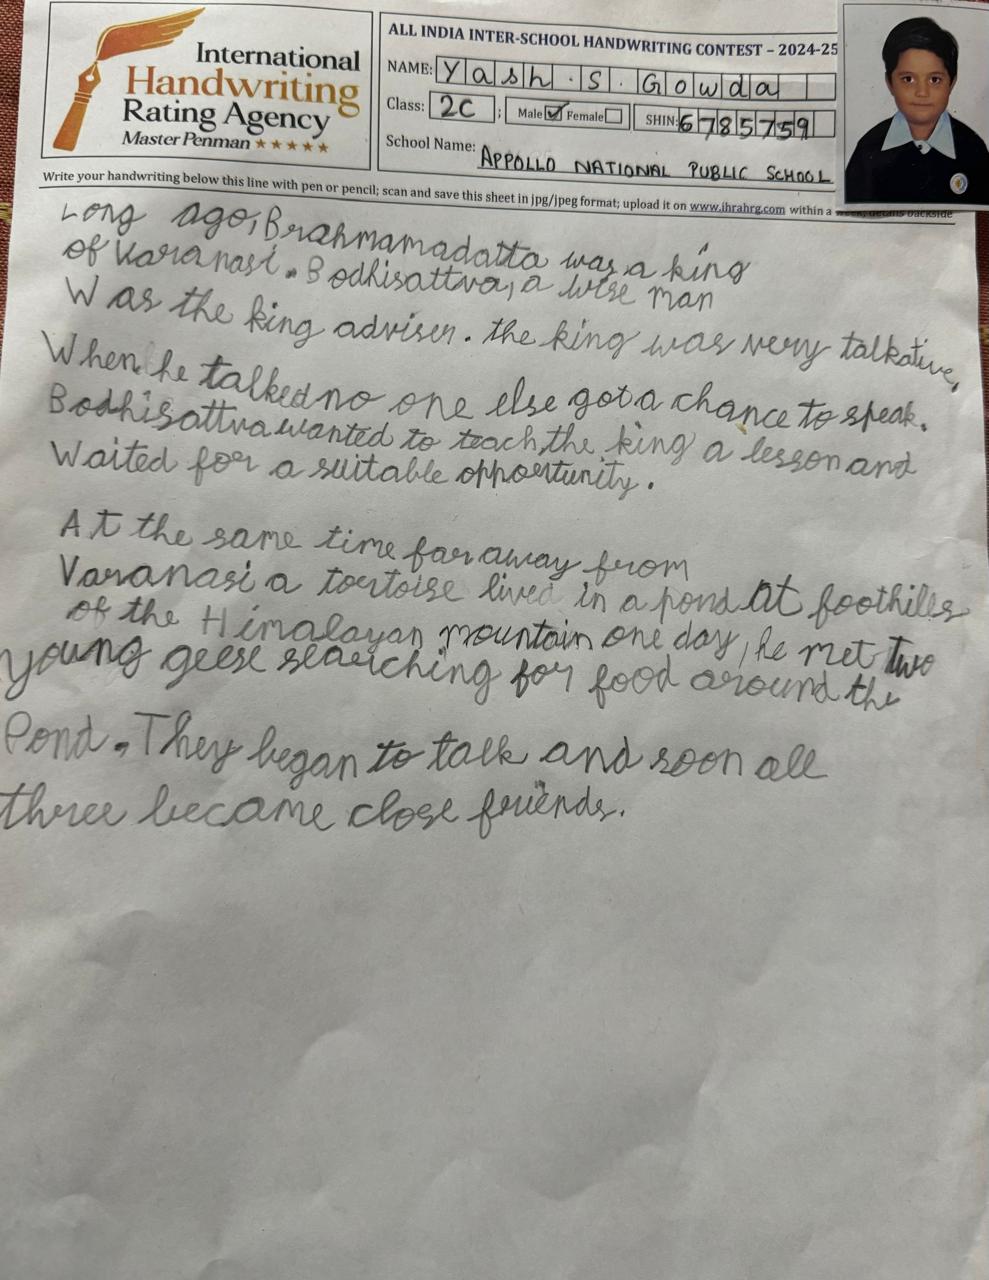 International
Handwriting
Rating Agency
Master Penman ★★★★★
ALL INDIA INTER-SCHOOL HANDWRITING CONTEST – 2024-25
NAME: Yash . S . Gowda
Class: 2C ; Male ☑ Female ☐ SHIN: 6785759
School Name: APPOLLO NATIONAL PUBLIC SCHOOL
Write your handwriting below this line with pen or pencil; scan and save this sheet in jpg/jpeg format; upload it on www.ihrahrg.com within a week; details backside
Long ago, Brahmamadatta was a king
of Varanasi. Bodhisattva, a wise man
Was the king adviser. the king was very talkative,
When he talked no one else got a chance to speak.
Bodhisattva wanted to teach, the king a lesson and
Waited for a suitable opportunity.
At the same time far away from
Varanasi a tortoise lived in a pond at foothills
of the Himalayan mountain one day, he met Two
young geese searching for food around the
Pond. They began to talk and soon all
three became close friends.